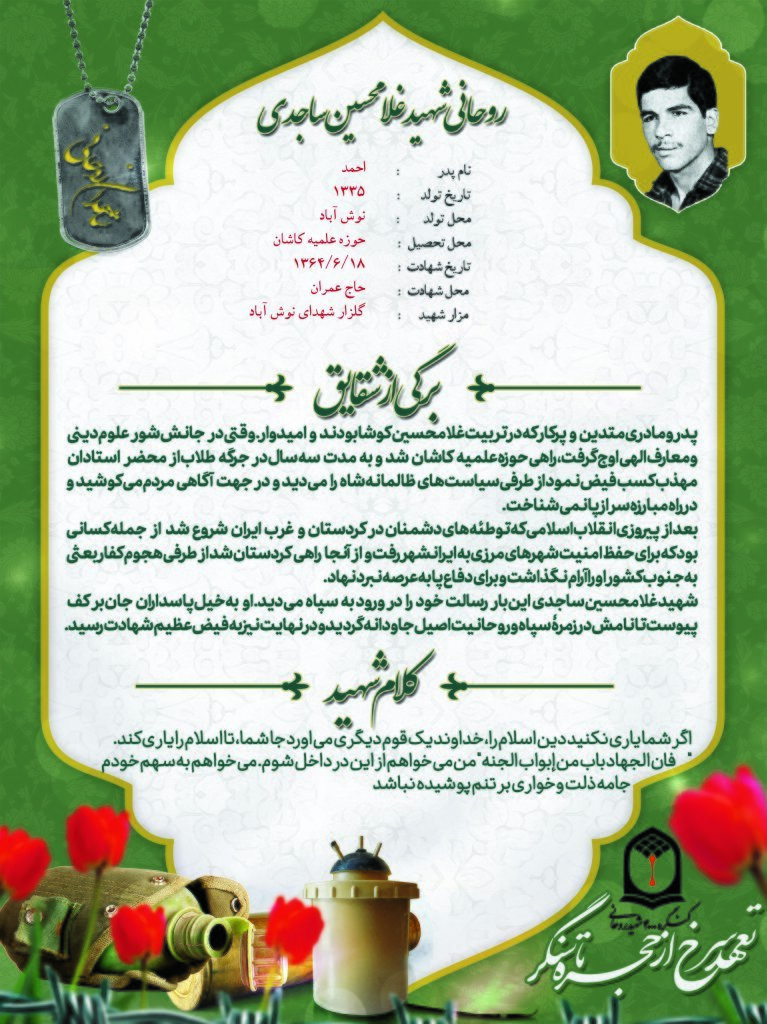 روحانی شهید غلامحسین ساجدی
نام پدر : احمد
تاریخ تولد : ۱۳۳۵
محل تولد : نوش آباد
محل تحصیل : حوزه علمیه کاشان
تاریخ شهادت : ۱۳۶۴/۶/۱۸
محل شهادت : حاج عمران
مزار شهید : گلزار شهدای نوش آباد
برگی از شقایق
پدر و مادری متدین و پرکار که در تربیت غلامحسین کوشا بودند و امیدوار. وقتی در جانش شور علوم دینی
و معارف الهی اوج گرفت، راهی حوزه علمیه کاشان شد و به مدت سه سال در جرگه طلاب از محضر استادان
مهذب کسب فیض نمود از طرفی سیاست‌های ظالمانه شاه را می‌دید و در جهت آگاهی مردم می‌کوشید و
در راه مبارزه سر از پا نمی‌شناخت.
بعد از پیروزی انقلاب اسلامی که توطئه‌های دشمنان در کردستان و غرب ایران شروع شد از جمله کسانی
بود که برای حفظ امنیت شهرهای مرزی به ایرانشهر رفت و از آنجا راهی کردستان شد از طرفی هجوم کفار بعثی
به جنوب کشور او را آرام نگذاشت و برای دفاع پا به عرصه نبرد نهاد.
شهید غلامحسین ساجدی این بار رسالت خود را در ورود به سپاه می‌دید. او به خیل پاسداران جان بر کف
پیوست تا نامش در زمرهٔ سپاه و روحانیت اصیل جاودانه گردید و در نهایت نیز به فیض عظیم شهادت رسید.
کلام شهید
اگر شما یاری نکنید دین اسلام را، خداوند یک قوم دیگری می اورد جا شما، تا اسلام را یاری کند.
" فان الجهاد باب من إبواب الجنه" من می‌خواهم از این در داخل شوم. می‌خواهم به سهم خودم
جامه ذلت و خواری بر تنم پوشیده نباشد
کنگره ۲۰۰۰ شهید روحانی
تعهد سرخ از حجره تا سنگر